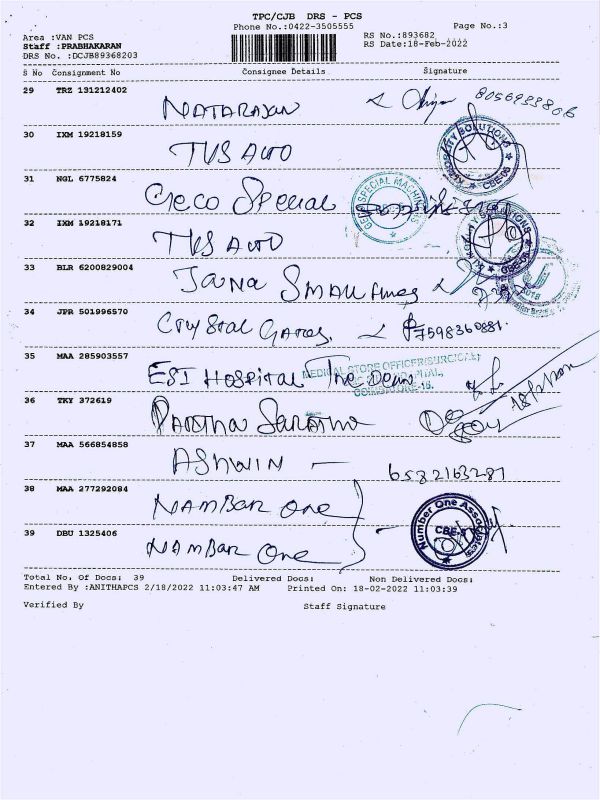 TPC/CJB DRS - PCS
Phone No.:0422-3505555 Page No.:3
Area :VAN PCS RS No.:893682
Staff :PRABHAKARAN RS Date:18-Feb-2022
DRS No. :DCJB89368203
S No Consignment No Consignee Details Signature
29 TRZ 131212402
NATARAJAN
30 IXM 19218159
TVS AUTO
31 NGL 6775824
Geco Special
32 IXM 19218171
TVS AUTO
33 BLR 6200829004
Jana Small
34 JPR 501996570
Crystal Gates 7598360881
35 MAA 285903557
ESI Hospital The Dean
MEDICAL STORE OFFICER(SURGICAL)
COIMBATORE-15.
36 TKY 372619
Partha Sarathi
37 MAA 566854858
ASHWIN - 6582163281
38 MAA 277292084
NAMBAR One
39 DBU 1325406
NAMBAR One
Number One Associates
CBE-
Total No. Of Docs: 39 Delivered Docs: Non Delivered Docs:
Entered By :ANITHAPCS 2/18/2022 11:03:47 AM Printed On: 18-02-2022 11:03:39
Verified By Staff Signature